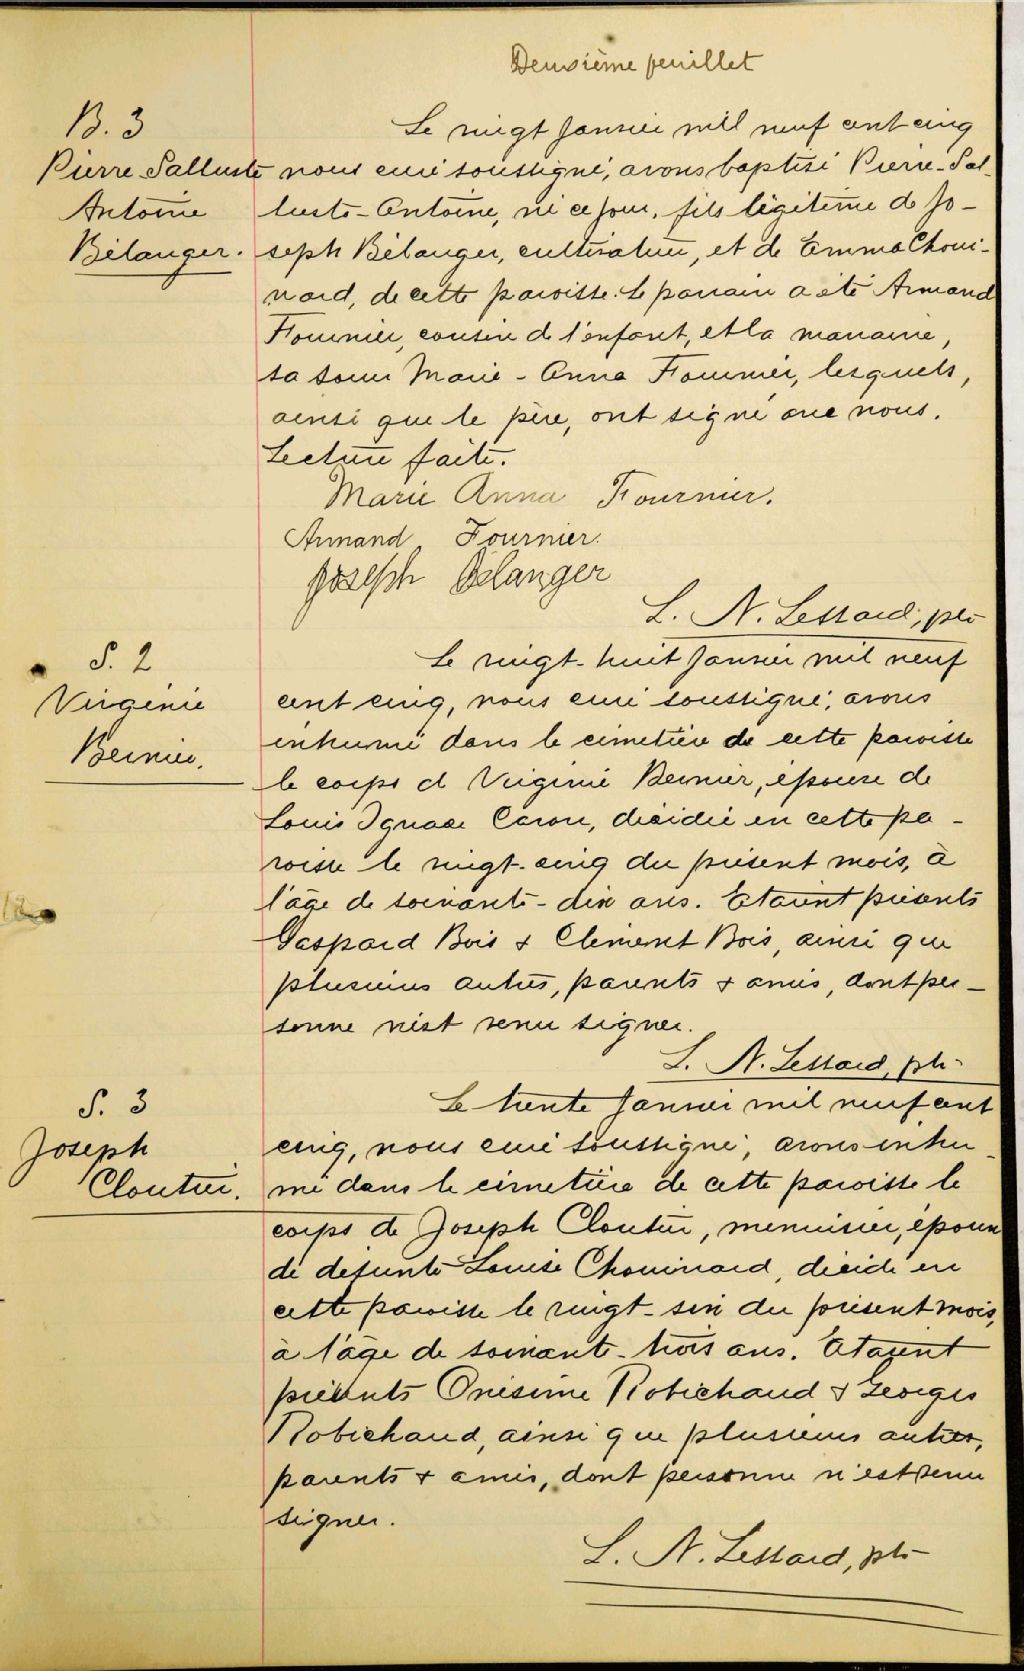 Deuxième feuillet
B. 3
Pierre-Salluste
Antoine
Bélanger.
Le vingt Janvier mil neuf cent cinq
nous curé soussigné, avons baptisé Pierre-Sal-
luste-Antoine, né ce jour, fils légitime de Jo-
seph Bélanger, cultivateur, et de Emma Choui-
nard, de cette paroisse. Le parrain a été Armand
Fournier, cousin de l'enfant, et la marraine,
sa soeur Marie-Anna Fournier, lesquels,
ainsi que le père, ont signé avec nous.
Lecture faite.
Marie Anna Fournier.
Armand Fournier.
Joseph Bélanger
L. N. Lessard, ptr
S. 2
Virginie
Bernier.
Le vingt-huit Janvier mil neuf
cent cinq, nous curé soussigné, avons
inhumé dans le cimetière de cette paroisse
le corps d Virginie Bernier, épouse de
Louis Ignace Caron, décédée en cette pa-
roisse le vingt-cinq du présent mois, à
l'âge de soixante-dix ans. Etaient présents
Gaspard Bois & Clement Bois, ainsi que
plusieurs autres, parents & amis, dont per-
sonne n'est venu signer.
L. N. Lessard, ptr
S. 3
Joseph
Cloutier.
Le trente Janvier mil neuf cent
cinq, nous curé soussigné, avons inhu-
mé dans le cimetière de cette paroisse le
corps de Joseph Cloutier, menuisier, époux
de défunte Louise Chouinard, décédé en
cette paroisse le vingt-six du présent mois,
à l'âge de soixante-trois ans. Etaient
présents Onésime Robichaud & Georges
Robichaud, ainsi que plusieurs autres,
parents & amis, dont personne n'est venu
signer.
L. N. Lessard, ptr